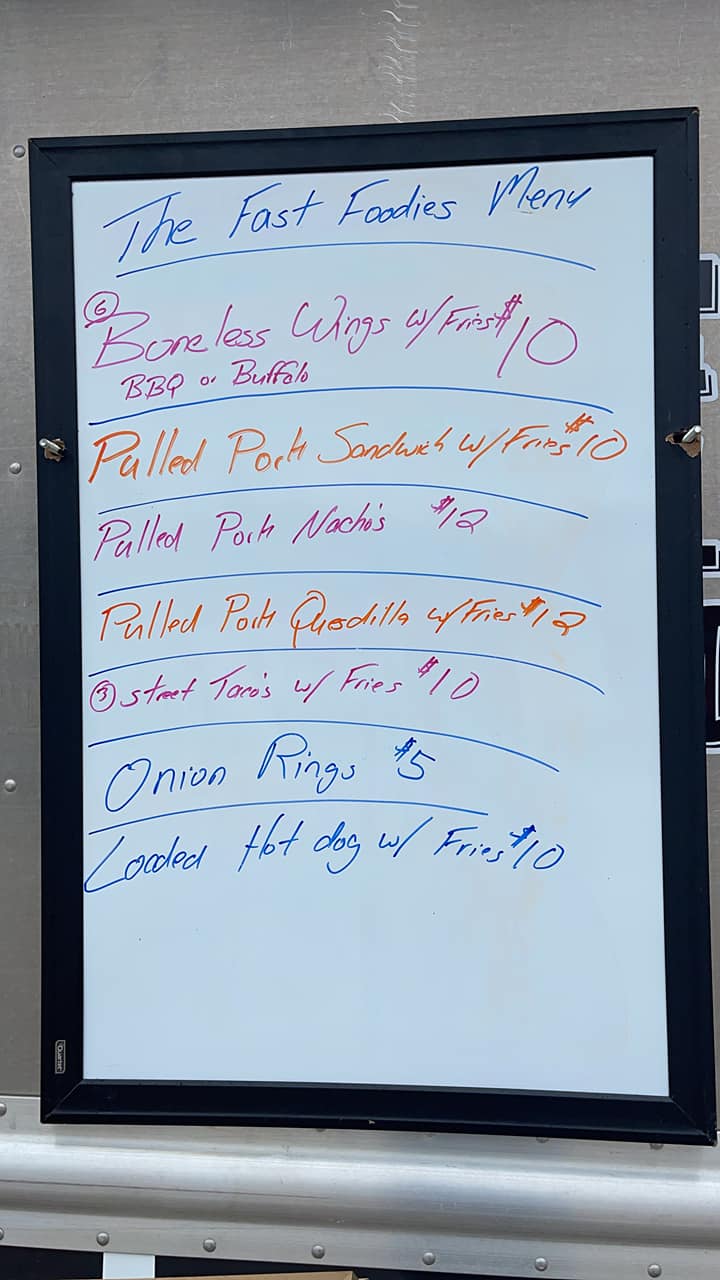 The Fast Foodies Menu
6
Boneless Wings w/Fries $10
BBQ or Buffalo
Pulled Pork Sandwich w/Fries $10
Pulled Pork Nacho's $12
Pulled Pork Quesdilla w/Fries $12
3 street Taco's w/ Fries $10
Onion Rings $5
Loaded Hot dog w/ Fries $10
Quartet